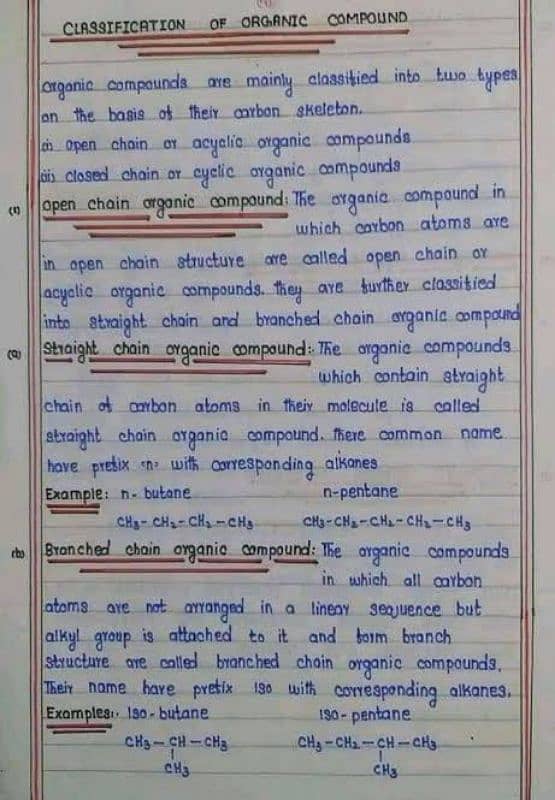 CLASSIFICATION OF ORGANIC COMPOUND
organic compounds are mainly classified into two types
on the basis of their carbon skeleton.
(i) open chain or acyclic organic compounds
(ii) closed chain or cyclic organic compounds
(1) open chain organic compound: The organic compound in
which carbon atoms are
in open chain structure are called open chain or
acyclic organic compounds. They are further classified
into straight chain and branched chain organic compound
(a) Straight chain organic compound:- The organic compounds
which contain straight
chain of carbon atoms in their molecule is called
straight chain organic compound. There common name
have prefix 'n' with corresponding alkanes
Example: n- butane n-pentane
CH₃-CH₂-CH₂-CH₃ CH₃-CH₂-CH₂-CH₂-CH₃
(b) Branched chain organic compound: The organic compounds
in which all carbon
atoms are not arranged in a linear sequence but
alkyl group is attached to it and form branch
structure are called branched chain organic compounds.
Their name have prefix iso with corresponding alkanes.
Examples:- Iso-butane Iso-pentane
CH₃-CH-CH₃ CH₃-CH₂-CH-CH₃
CH₃ CH₃